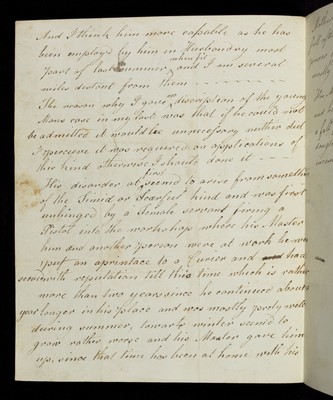 And I think him more capable as he has
been employ'd by him in Husbandry most
when fit
part of last summer, and I am several
miles distant from them
The reason why I gave no discription of the young
Mans case in my last was that if he could not
be admitted it would be unnecessary neither did
I perceive it was required on applications of
this kind otherwise I should done it
first
His disorder at seemd to arise from something
of the Timid or Fearful kind and was first
unhinged by a Female servant firing a
Pistol into the workshop where his Master
him and another person were at work he was
put an aprentace to a Currier and had
served with reputation till this time which is rather
more than two years since he continued about a
year longer in his place and was mostly prety well
during summer, towards winter seemd to
grow rather worse and his Master gave him
up, since that time has been at home with his